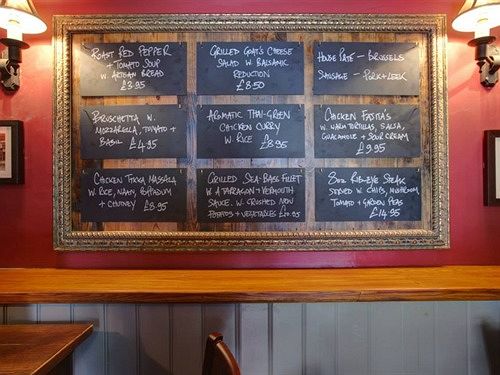 ROAST RED PEPPER
+ TOMATO SOUP
W. ARTISAN BREAD
£3.95
GRILLED GOAT'S CHEESE
SALAD W. BALSAMIC
REDUCTION
£8.50
HOUSE PATE – BRUSSELS
SAUSAGE – PORK+LEEK
BRUSCHETTA W.
MOZZARELLA, TOMATO +
BASIL £4.95
AROMATIC THAI-GREEN
CHICKEN CURRY
W. RICE £8.95
CHICKEN FAJITA'S
W. WARM TORTILLAS, SALSA,
GUACAMOLE + SOUR CREAM
£9.95
CHICKEN TIKKA MASSALA
W. RICE, NAAN, POPPADUM
+ CHUTNEY £8.95
GRILLED SEA-BASS FILLET
W. A TARRAGON + VERMOUTH
SAUCE. W. CRUSHED NEW
POTATOS + VEGETABLES £10.95
8oz RIBEYE STEAK
SERVED W. CHIPS, MUSHROOM
TOMATO + GARDEN PEAS
£14.95